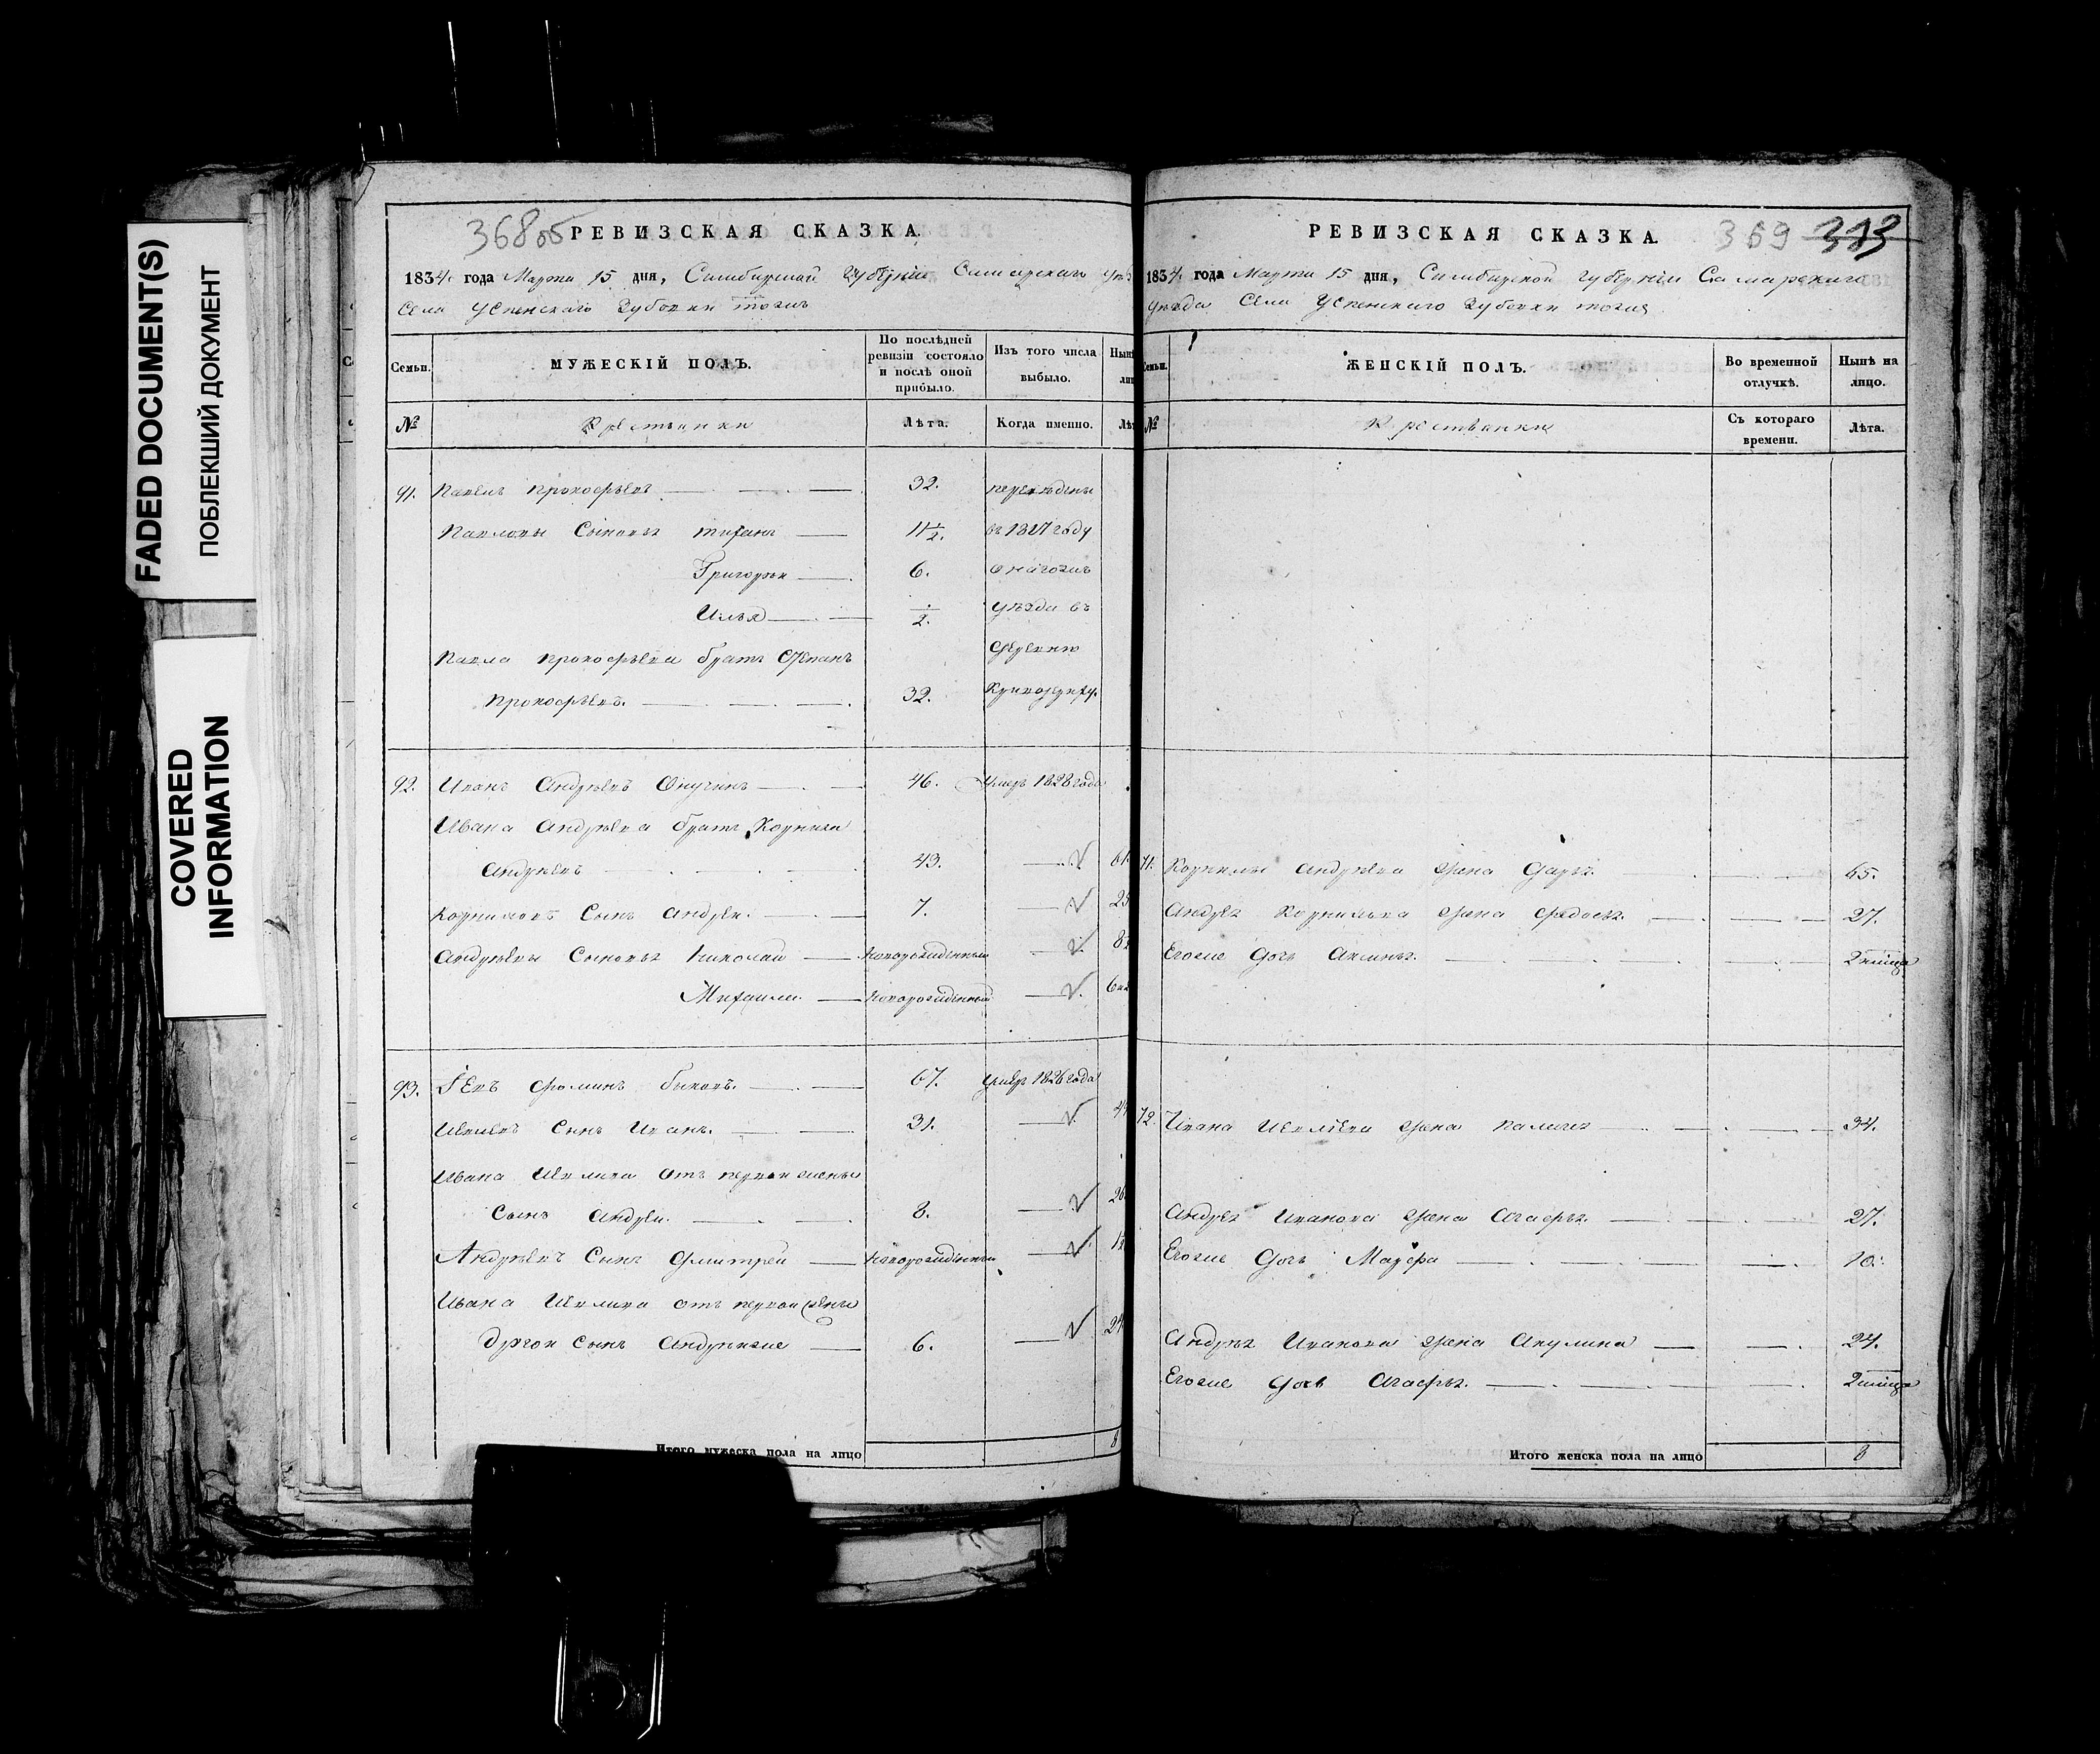 FADED DOCUMENT(S)
ПОБЛЕКШИЙ ДОКУМЕНТ
COVERED
INFORMATION
368об
РЕВИЗСКАЯ СКАЗКА.
1834. года Марта 15 дня, Симбирской губернiи Самарскаго
Села Успенскаго Зубовки тожъ
Семьи.
МУЖЕСКIЙ ПОЛЪ.
По послѣдней
ревизiи состояло
и послѣ оной
прибыло.
Изъ того числа
выбыло.
№
Крестьяне
Лѣта.
Когда именно.
91. Павелъ Прокофьевъ 32. переведены
Павловы Сыновья 11 1/2. въ 18 году
Григорьи 6.
Илья 1/2. уѣзда въ
Павла Прокофьева братъ Степанъ деревню
Прокофьевъ. 32.
92. Иванъ Андрѣевъ 46. Умеръ 1828 года
Ивана Андрѣева братъ Корнила
Андрѣевъ 43. 61.
Корниловъ Сынъ Андреи. 7. 25
Андрѣевы Сыновья Николаи Новорожденный
Михаила Новорожденный
93. Фоминъ Быковъ. 67. Умеръ 1826 года
Сынъ Иванъ. 31.
Ивана отъ первои жены
Сынъ Андреи. 8. 26
Андрѣевъ Сынъ Дмитреи Новорожденный
Ивана отъ первои жены
другои Сынъ 6. 24
Итого мужеска пола на лицо 8
РЕВИЗСКАЯ СКАЗКА.
369 313
1834. года Марта 15 дня, Симбирской губернiи Самарскаго
уѣзда Села Успенскаго Зубовки тожъ
Семьи.
ЖЕНСКIЙ ПОЛЪ.
Во временной
отлучкѣ.
Нынѣ на
лицо.
№
Крестьянки
Съ котораго
времени.
Лѣта.
71. Корнилы Андрѣева жена Дарья. 65.
Андрея Корнилова жена Федосья. 27.
Егоже дочь Аксинья. 2 мѣсяца
72. Ивана жена Палагея 34.
Андрея Иванова жена Агафья. 27.
Егоже дочь Мавра 10.
Андрея Иванова жена Акулина 24.
Егоже дочь Агафья. 2 мѣсяца
Итого женска пола на лицо 8